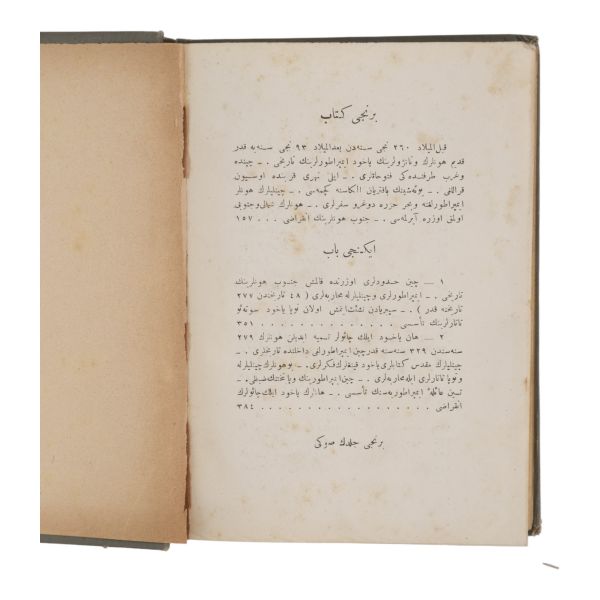 برنجی کتاب
قبل المیلاد ٢٦٠ نجی سنه‌دن بعدالمیلاد ٩٣ نجی سنه‌یه قدر
قدیم هونلرك وتانژولرینك یاخود ایمپراطورلرینك تاریخی . ـ چینده
وغرب طرفنده‌کی فتوحاتلری . ـ ایلی نهری قربنده اوسیون
قراللغی . ـ یوئه‌شینك باقتریان الکاسنه کچمه‌سی . ـ چینلیلرك هونلر
ایمپراطورلغنه وبحر خزره دوغرو سفرلری . ـ هونلرك شمالی وجنوبی
اولمق اوزره آیرلمه‌سی . ـ جنوب هونلرینك انقراضی . . . ١٥٧
ایکنجی باب
١ — چین حدودلری اوزرنده قالمش جنوب هونلرینك
تاریخی . ـ ایمپراطورلری وچینلیلرله محاربه‌لری ( ٤٨ تاریخندن ٢٧٧
تاریخنه قدر ) . ـ سیبریادن نشئت‌ایتمش اولان توپا یاخود سوته‌ئو
تاتارلرینك تأسسی . . . . . . . . . . . . . . ٣٥١
٢ — هان یاخود ایلك چائولر تسمیه ایدیلن هونلرك ٢٧٩
سنه‌سندن ٣٢٩ سنه‌سنه قدر چین ایمپراطورلغی داخلنده تاریخلری .
چینلیلرك مقدس کتابلری یاخود قینغلرك فکرلری . ـ بوهونلرك چینلیلرله
وتوپا تاتارلری ایله محاربه‌لری . ـ چین ایمپراطورینك وپایتختنك ضبطی . ـ
تسین عائلهٔ ایمپراطوریه‌سنك تأسسی . ـ هانلرك یاخود ایلك چائولرك
انقراضی . . . . . . . . . . . . . . . . ٣٨٤
برنجی جلدك صوکی